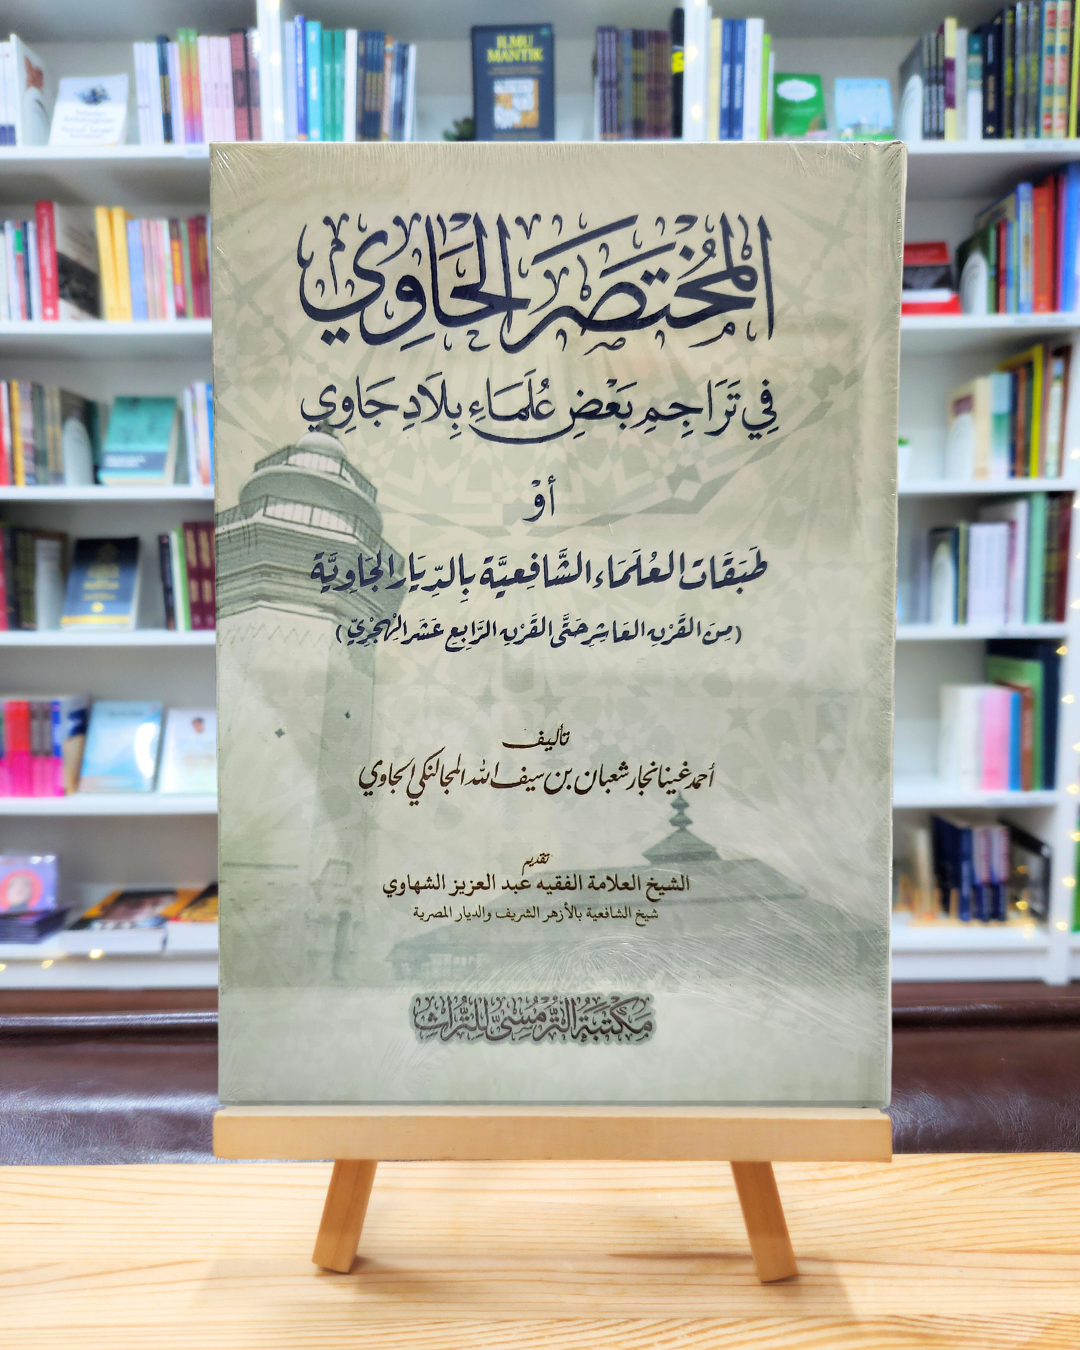 ILMU
MANTIK
المُخْتَصَرَ الحَاوِي
فِي تَرَاجِمِ بَعْضِ عُلَمَاءِ بِلَادِ جَاوِي
أوْ
طَبَقَات العُلَمَاء الشَّافِعِيَّة بِالدِّيَار الجَاوِيَّة
(مِنَ القَرْنِ العَاشِر حَتَّى القَرْنِ الرَّابِع عَشَر الهِجْرِيّ)
تأليف
أحمد غينانجار شعبان بن سيف الله المجالنكي الجاوي
تقديم
الشيخ العلامة الفقيه عبد العزيز الشهاوي
شيخ الشافعية بالأزهر الشريف والديار المصرية
مَكْتَبَةُ التُّرْمُسِيِّ لِلتُّرَاثِ